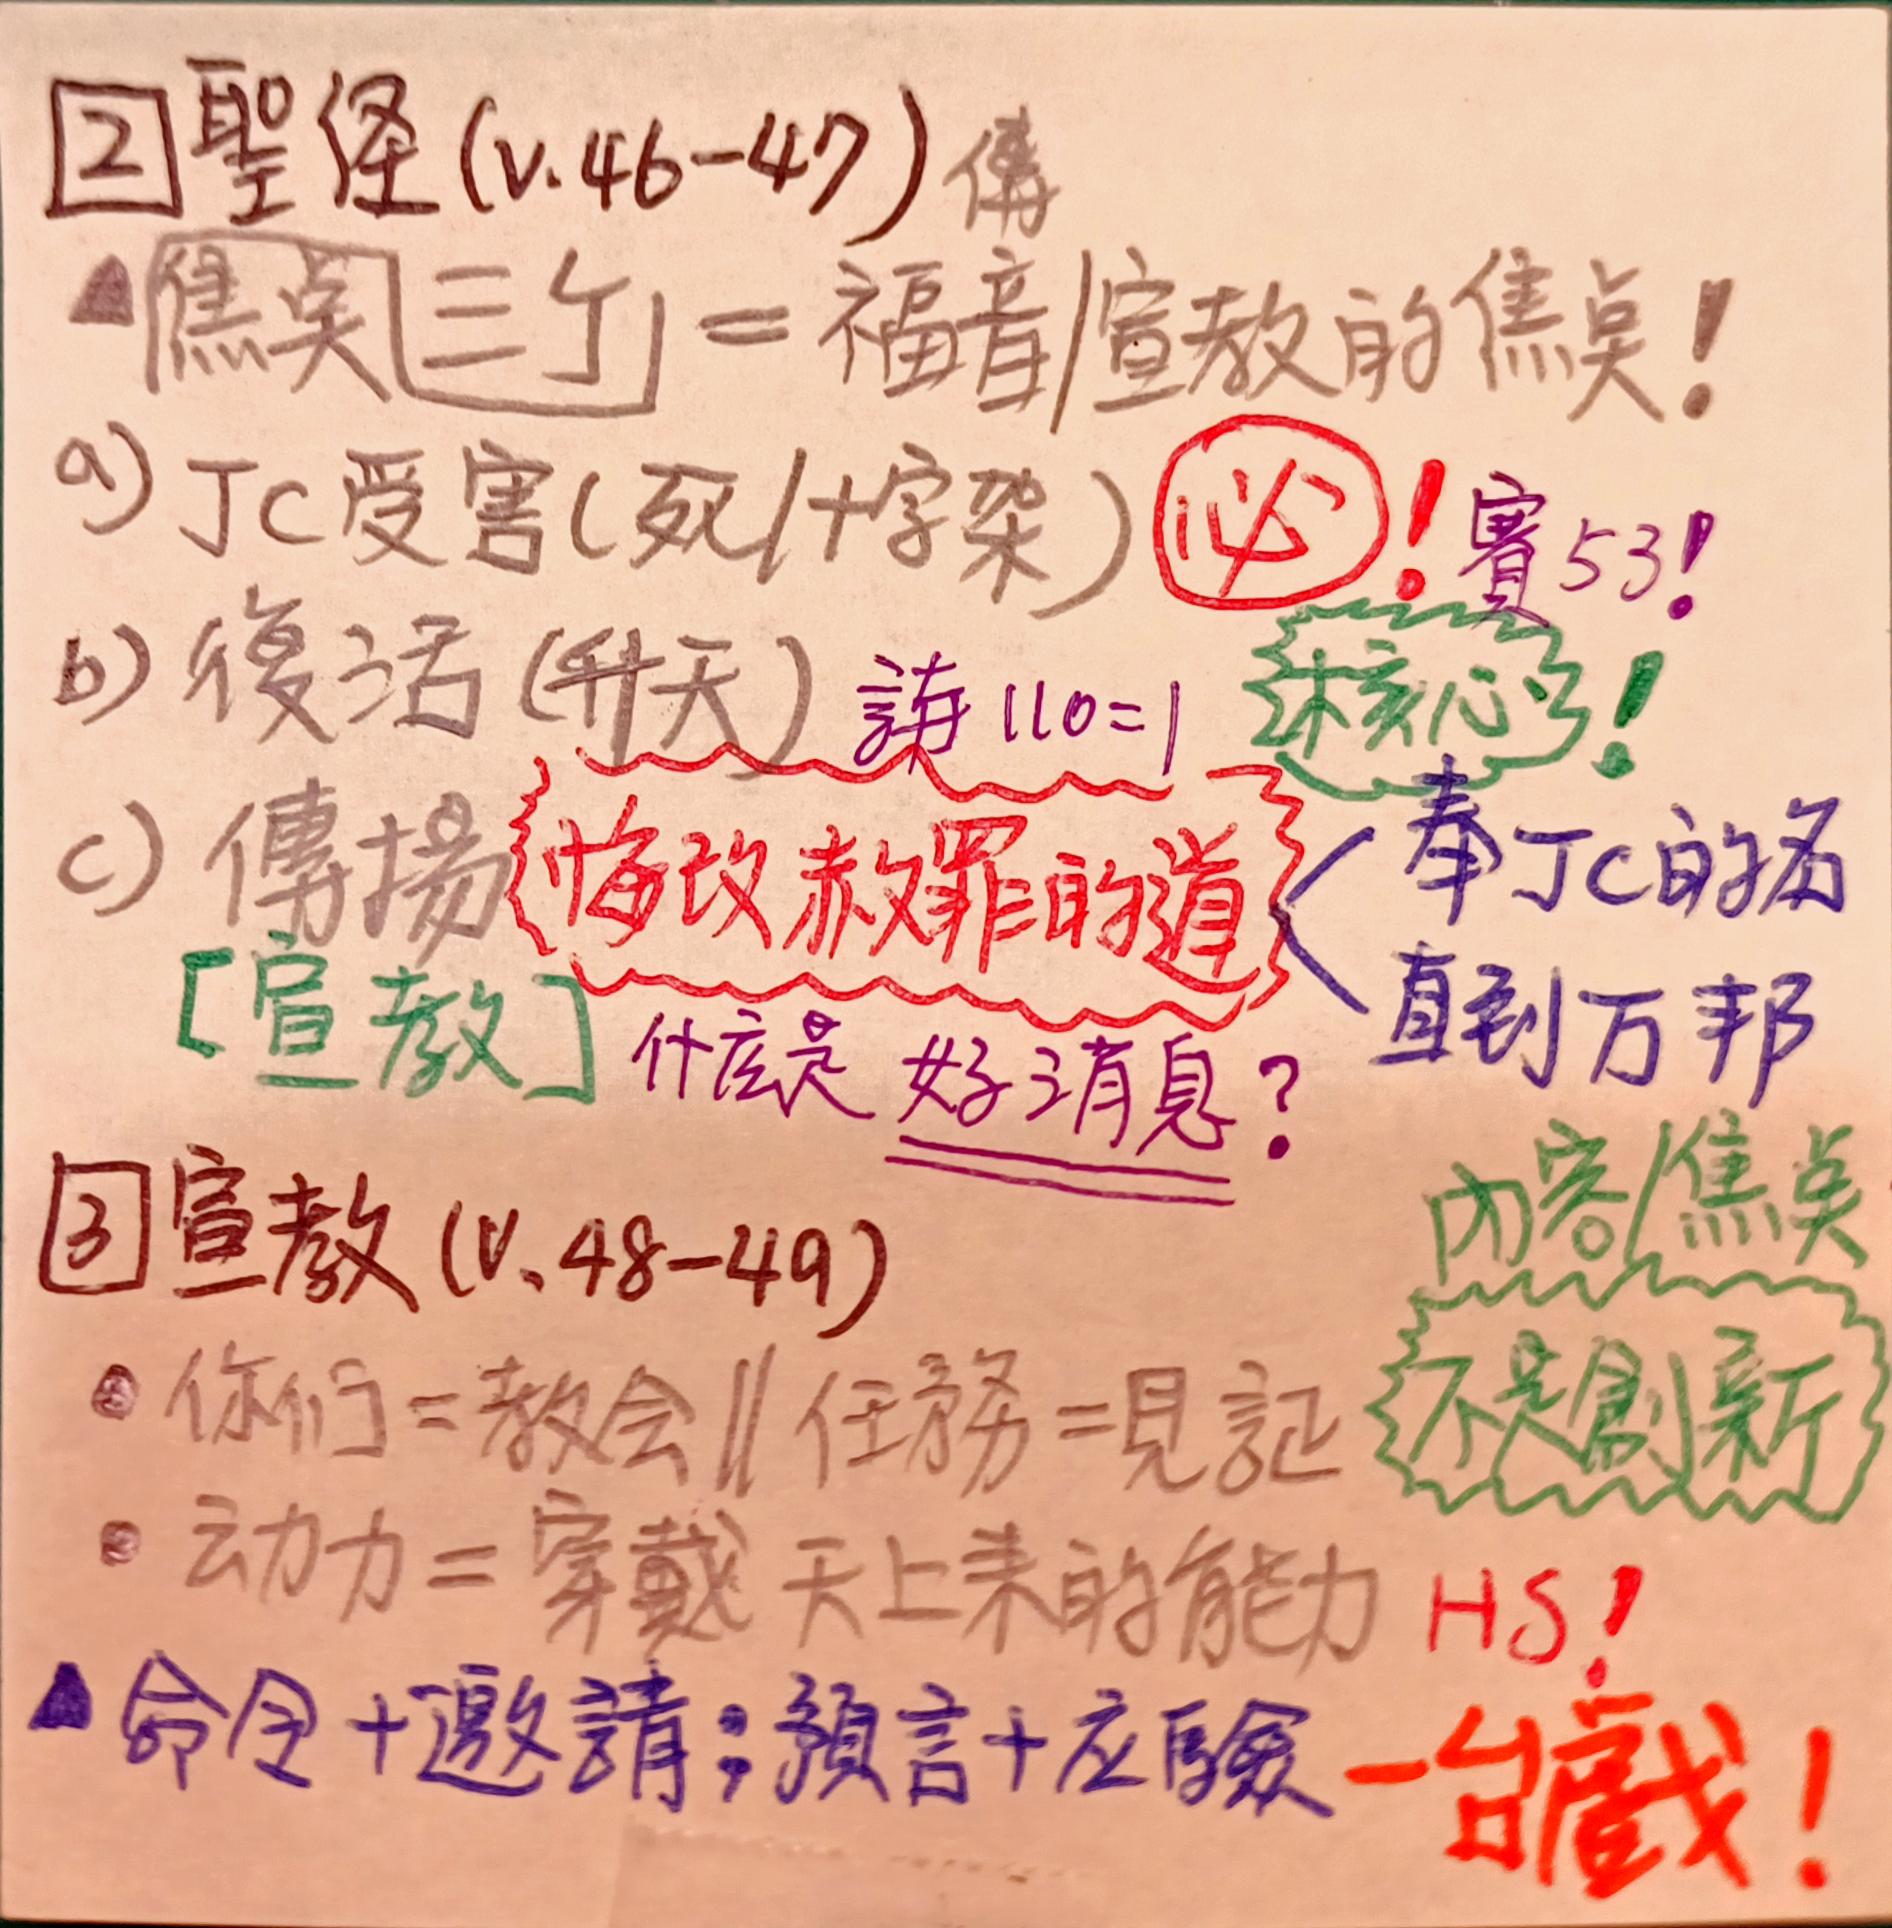 2 聖経 (v.46-47) 傳
▲焦点三个 = 福音/宣教的焦点!
a) JC受害(死/十字架) 必! 賽53!
b) 復活(升天) 詩110=1 核心!
c) 傳揚 悔改赦罪的道 < 奉JC的名
直到万邦
[宣教] 什么是 好消息?
内容/焦点
3 宣教 (v.48-49)
不是創新
• 你们=教会 || 任務=見証
• 动力=穿戴 天上来的能力 HS!
▲命令+邀請;預言+应驗 一台戲!